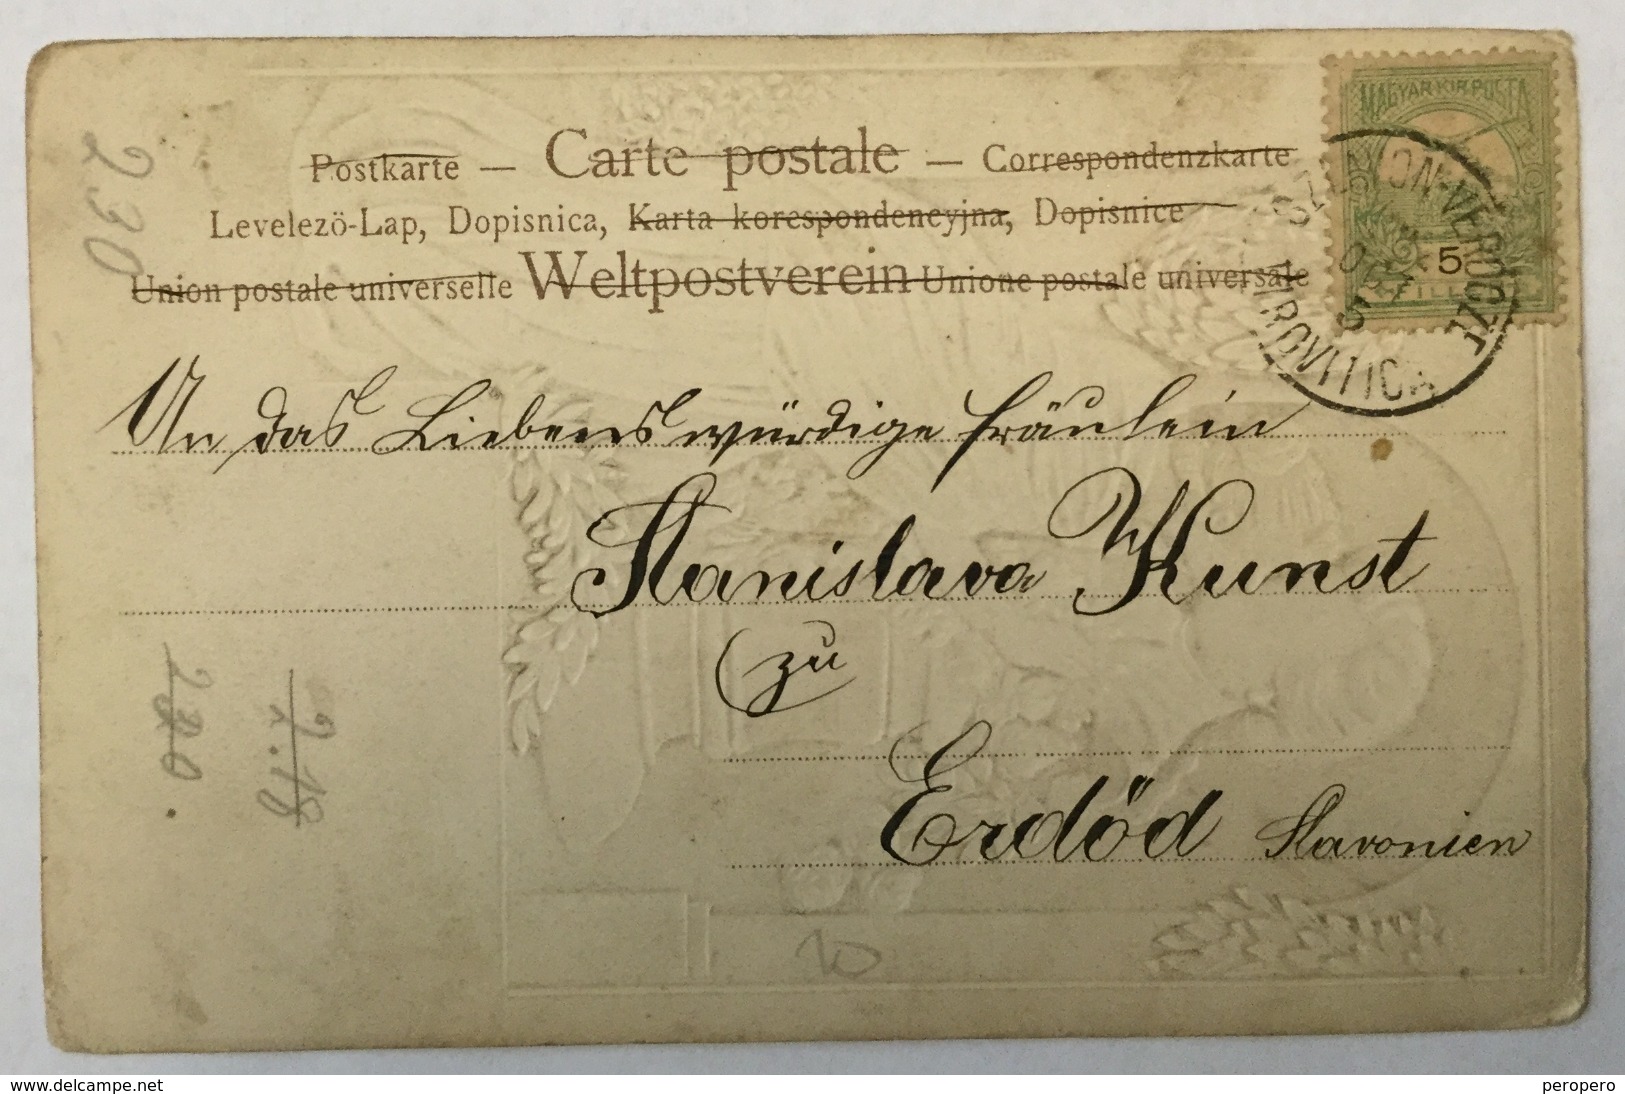 Postkarte — Carte postale — Correspondenzkarte
Levelezö-Lap, Dopisnica, Karta korespondencyjna, Dopisnice
Union postale universelle Weltpostverein Unione postale universale
MAGYAR KIR. POSTA
5
230
An das Liebenswürdige Fräulein
Stanislava Kunst
zu
Erdöd Slavonien
www.delcampe.net
peropero